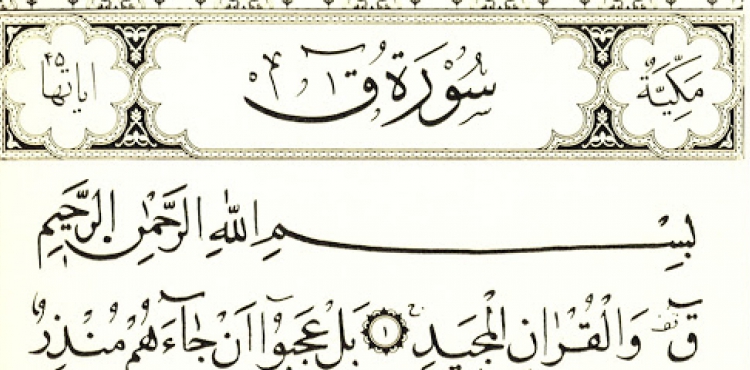 مَكِّيَّةٌ
سُورَةُ قۤ
اياتها ٤٥
بِسْمِ اللّٰهِ الرَّحْمٰنِ الرَّحِيمِ
قۤ وَالْقُرْاٰنِ الْمَجِيدِ ١ بَلْ عَجِبُٓوا اَنْ جَٓاءَهُمْ مُنْذِرٌ